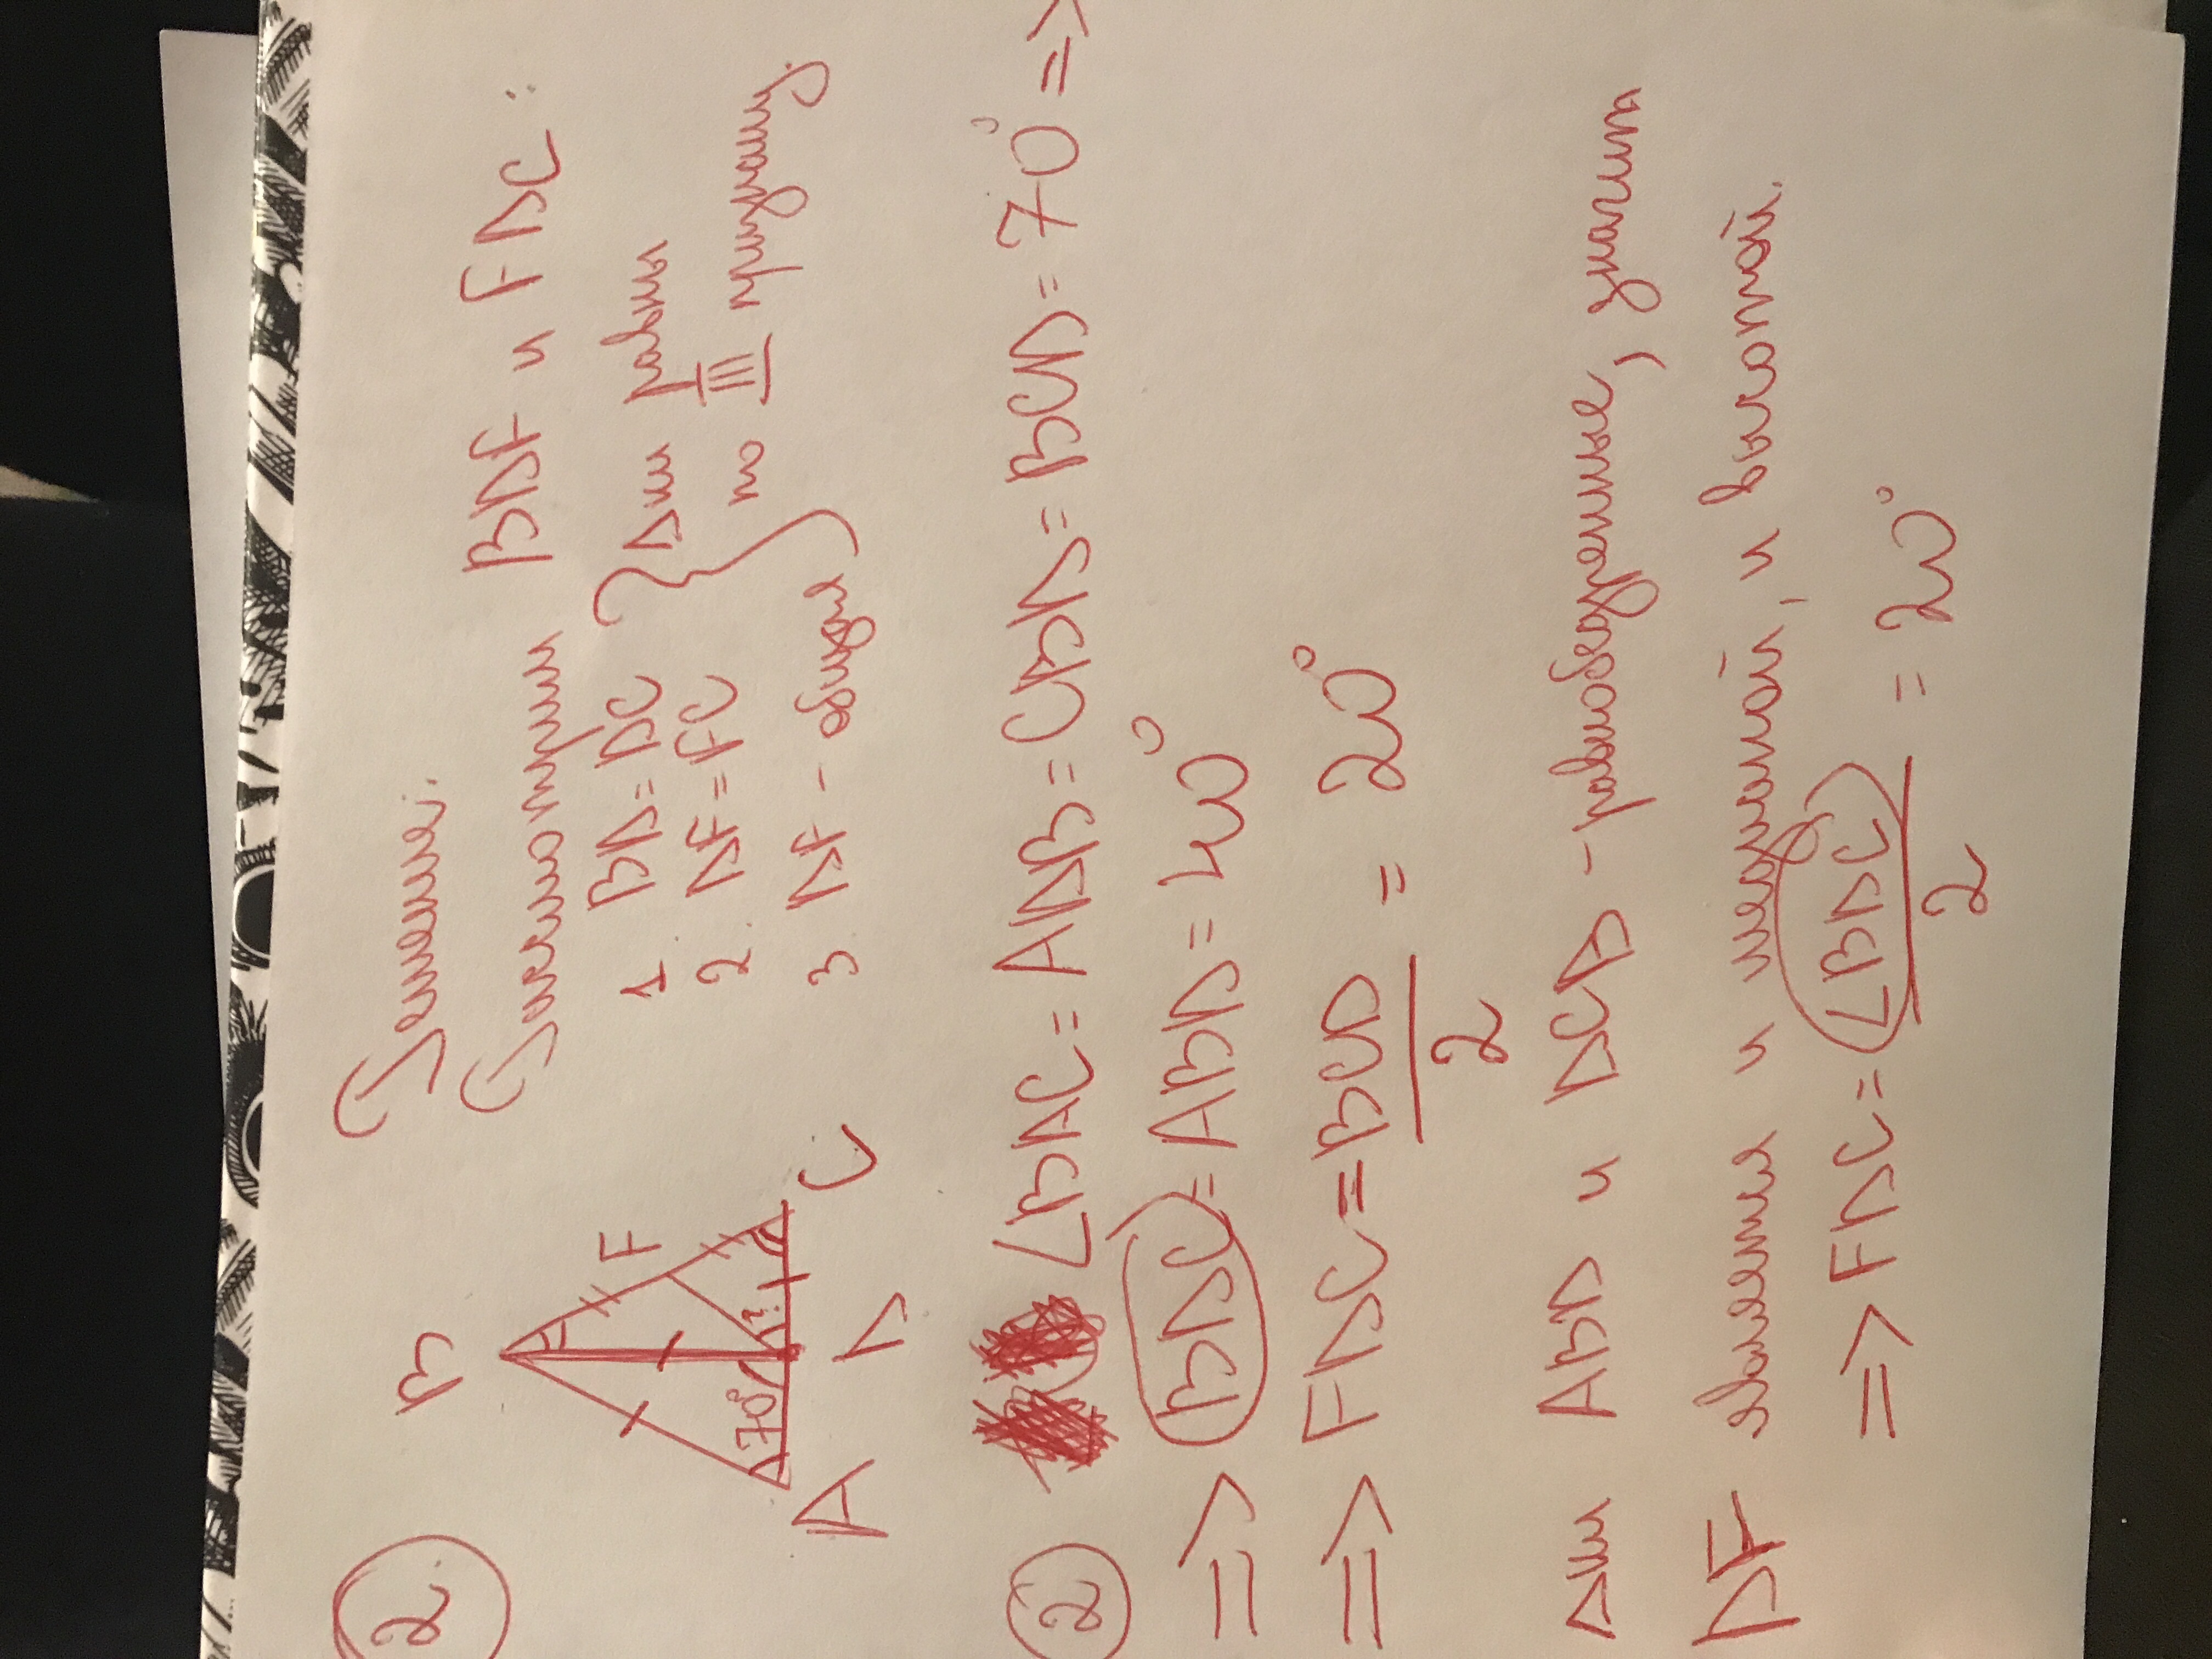 2.
Решение.
B
F
A
D
C
70°
?
Рассмотрим BDF и FDC:
1. BD = DC
2. DF = FC
3 DF - общая
} △ки равны
по III признаку.
2 ∠BAC = ADB = CBD = BCD = 70° =>
=> BDC = ABD = 40°
=> FDC = BCD/2 = 20°
△ки ABD и DCB - равнобедренные, значит
DF является и медианой, и высотой.
=> FDC = ∠BDC/2 = 20°